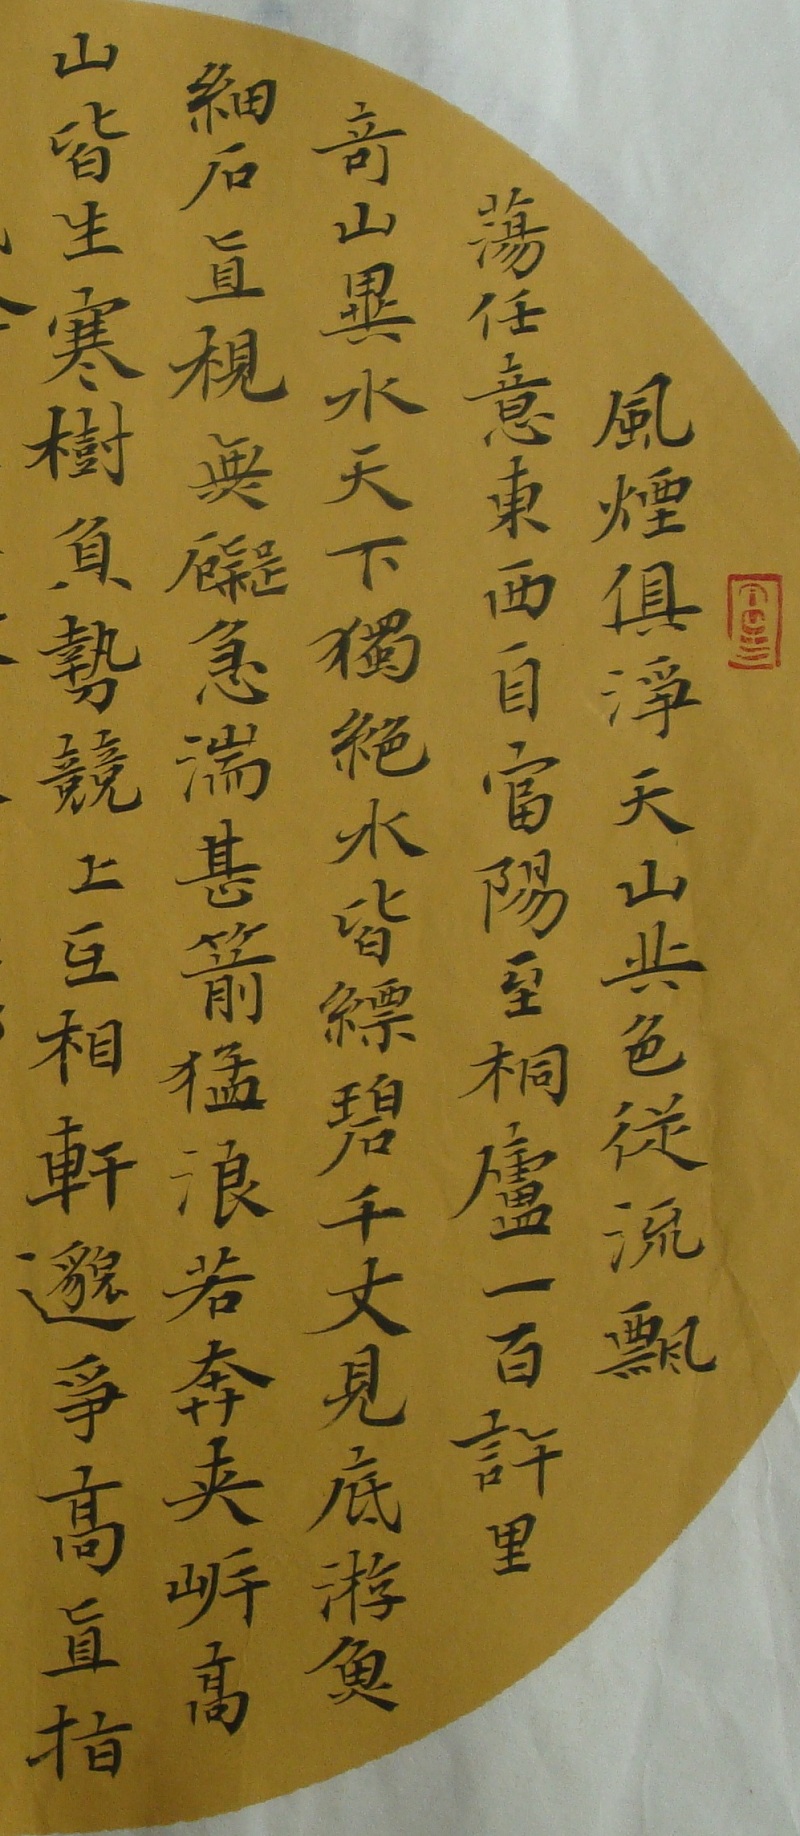 風煙俱淨天山共色從流飄
蕩任意東西自富陽至桐廬一百許里
奇山異水天下獨絕水皆縹碧千丈見底游魚
細石直視無礙急湍甚箭猛浪若奔夾岸高
山皆生寒樹負勢競上互相軒邈爭高直指